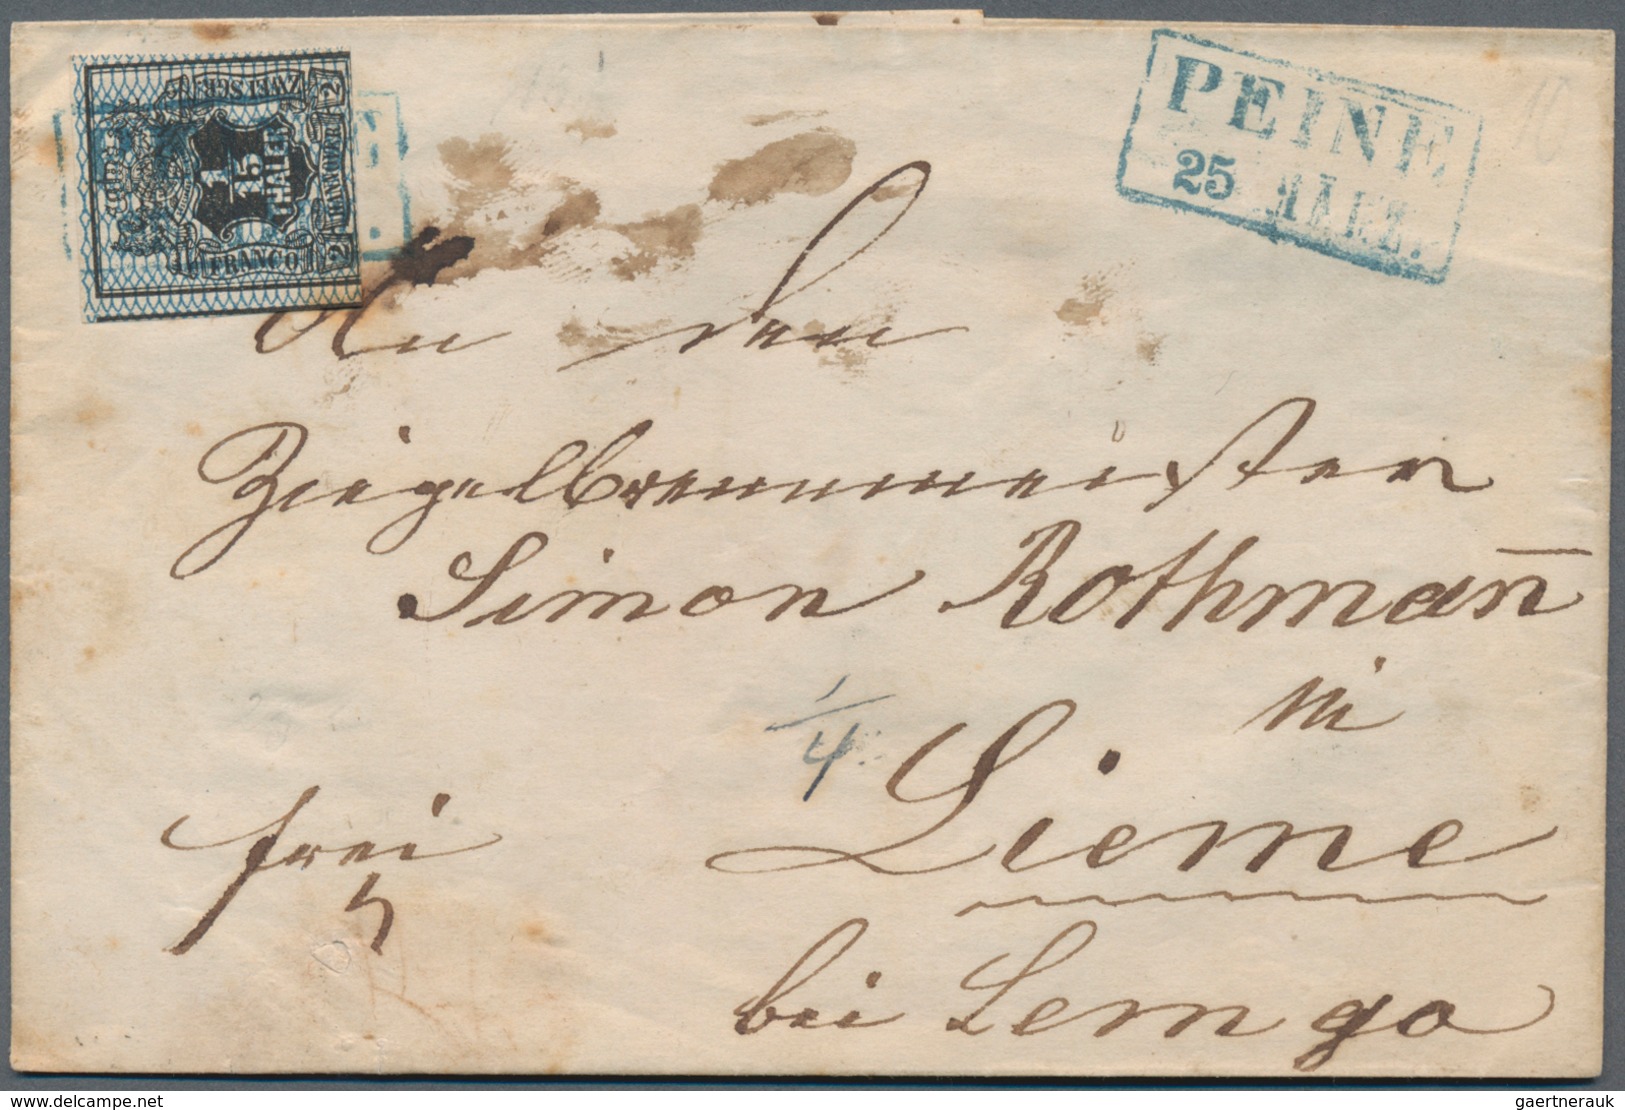 ZWEI SGR.
1/15
THALER
FRANCO
2 HANNOVER 2
PEINE
25 MÄRZ.
10
An den
Ziegelbrennmeister
Simon Rothman̄
in
1/4
Lieme
frei
bei Lemgo
www.delcampe.net
gaertnerauk